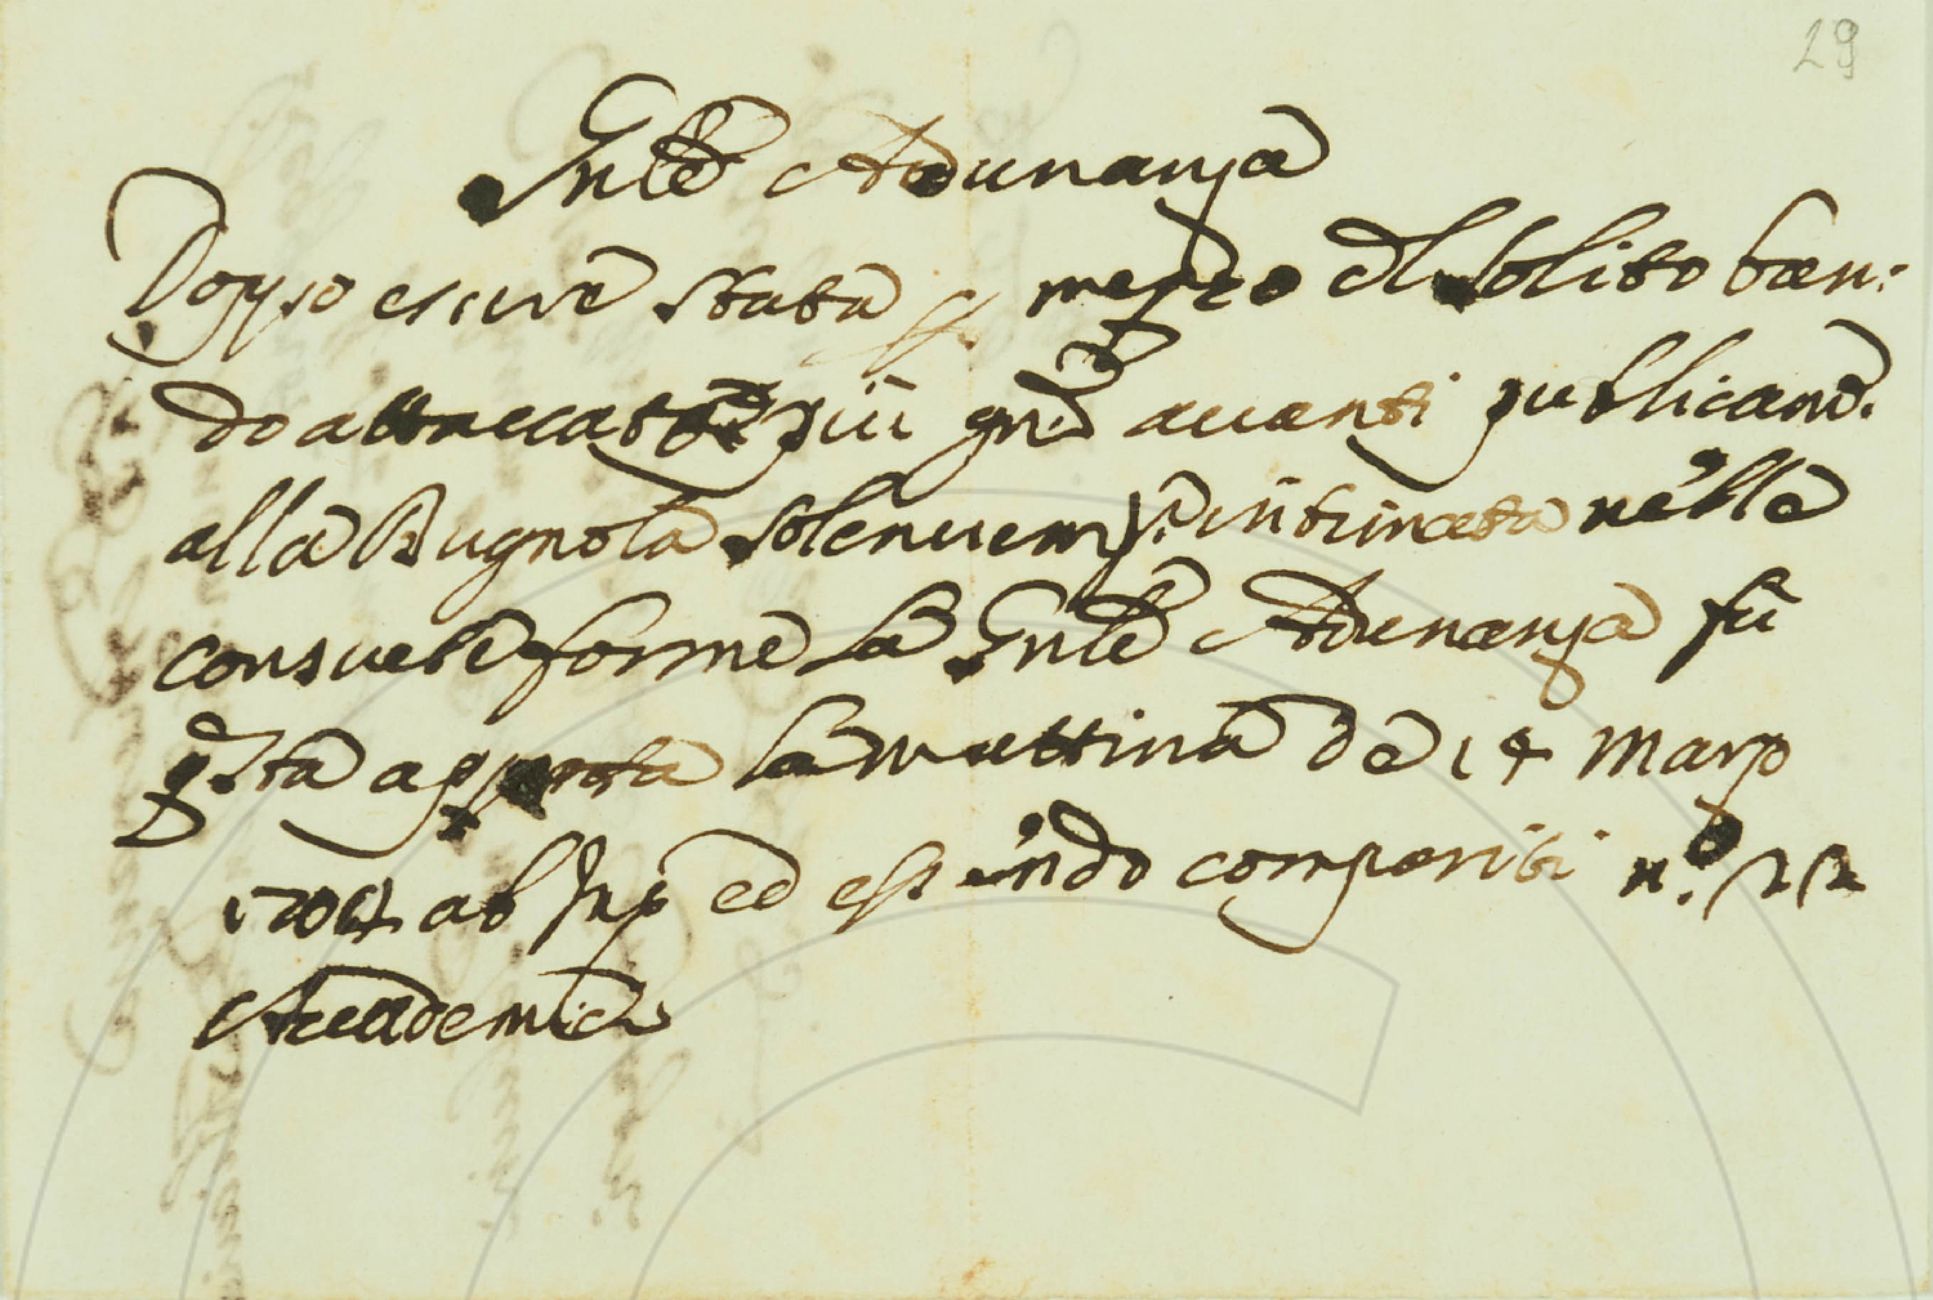 29
Gnle Adunanza
Doppo essere stata p mezzo del solito ban:
do attaccato più gni avanti publicam.
alla Bugnola solennem. intimata nelle
consuete forme la Gnle Adunanza fù
qsta aperta la mattina de 14 Marzo
1704 ab Inc ed essendo comparsi n.
Accademici